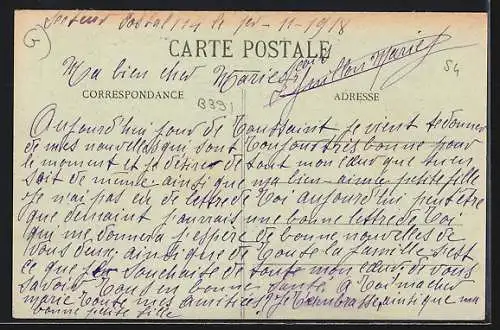 Secteur Postal 114 le 1er - 11 - 1918
CARTE POSTALE
Ma bien cher Marie
Guillon Marie
54
CORRESPONDANCE
B391
ADRESSE
Aujourd'hui jour de Toussaint je vient te donner
de mes nouvelles qui sont toujours très bonne pour
le moment et je désire de tout mon cœur que tu en
soit de même ainsi que ma bien-aimé petite fille
je n'ai pas eu de lettre de toi aujourd'hui peut être
que demain j'aurais une bonne lettre de toi
qui me donnera j'espère de bonne nouvelles de
vous deux ainsi que de toute la famille s'est
ce que je souhaite de toute mon cœur de vous
savoir tous en bonne santé à toi ma cher
marie toute mes amitiés je t'embrasse ainsi que ma
bonne petite fille